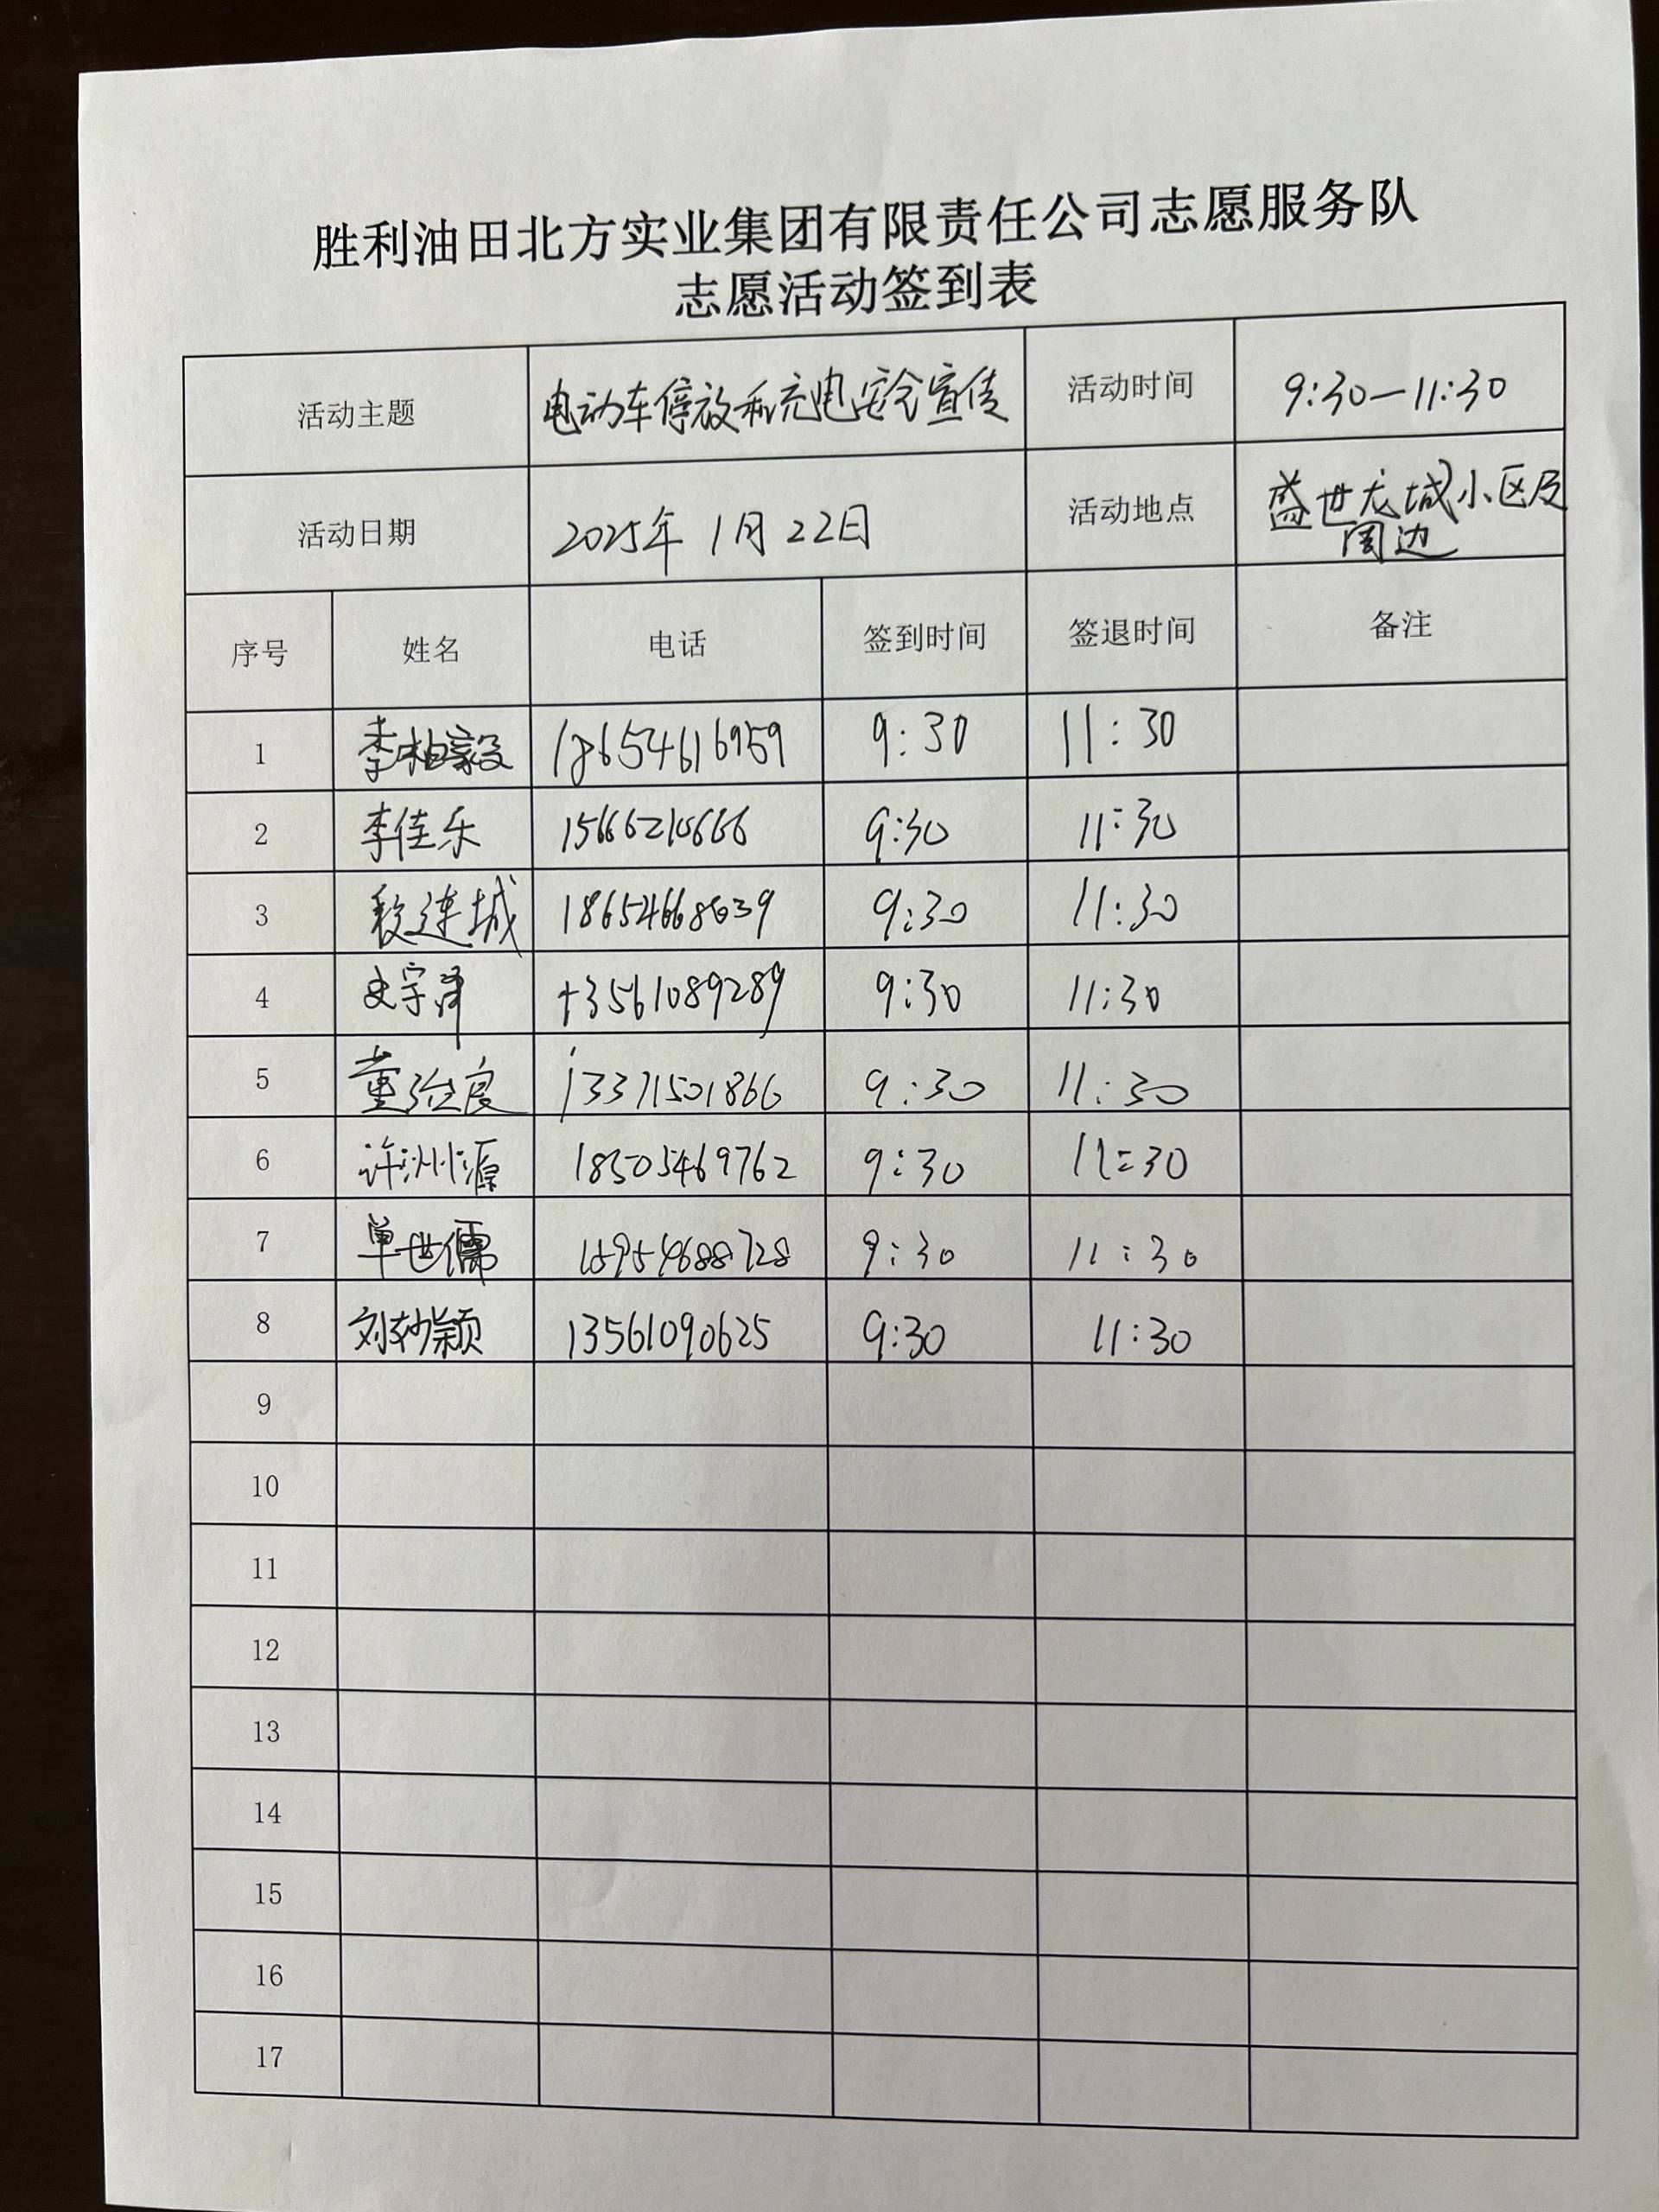 胜利油田北方实业集团有限责任公司志愿服务队
志愿活动签到表
活动主题 电动车停放和充电安全宣传 活动时间 9:30—11:30
活动日期 2025年1月22日 活动地点 盛世龙城小区及
周边
序号 姓名 电话 签到时间 签退时间 备注
1 李柏毅 18654616959 9:30 11:30
2 李佳乐 9:30 11:30
3 段连城 18654668639 9:30 11:30
4 史宗泽 13561089289 9:30 11:30
5 董 良 13371501866 9:30 11:30
6 许洲源 18505469762 9:30 11:30
7 单世儒 15954688728 9:30 11:30
8 刘妙颖 13561090625 9:30 11:30
9
10
11
12
13
14
15
16
17